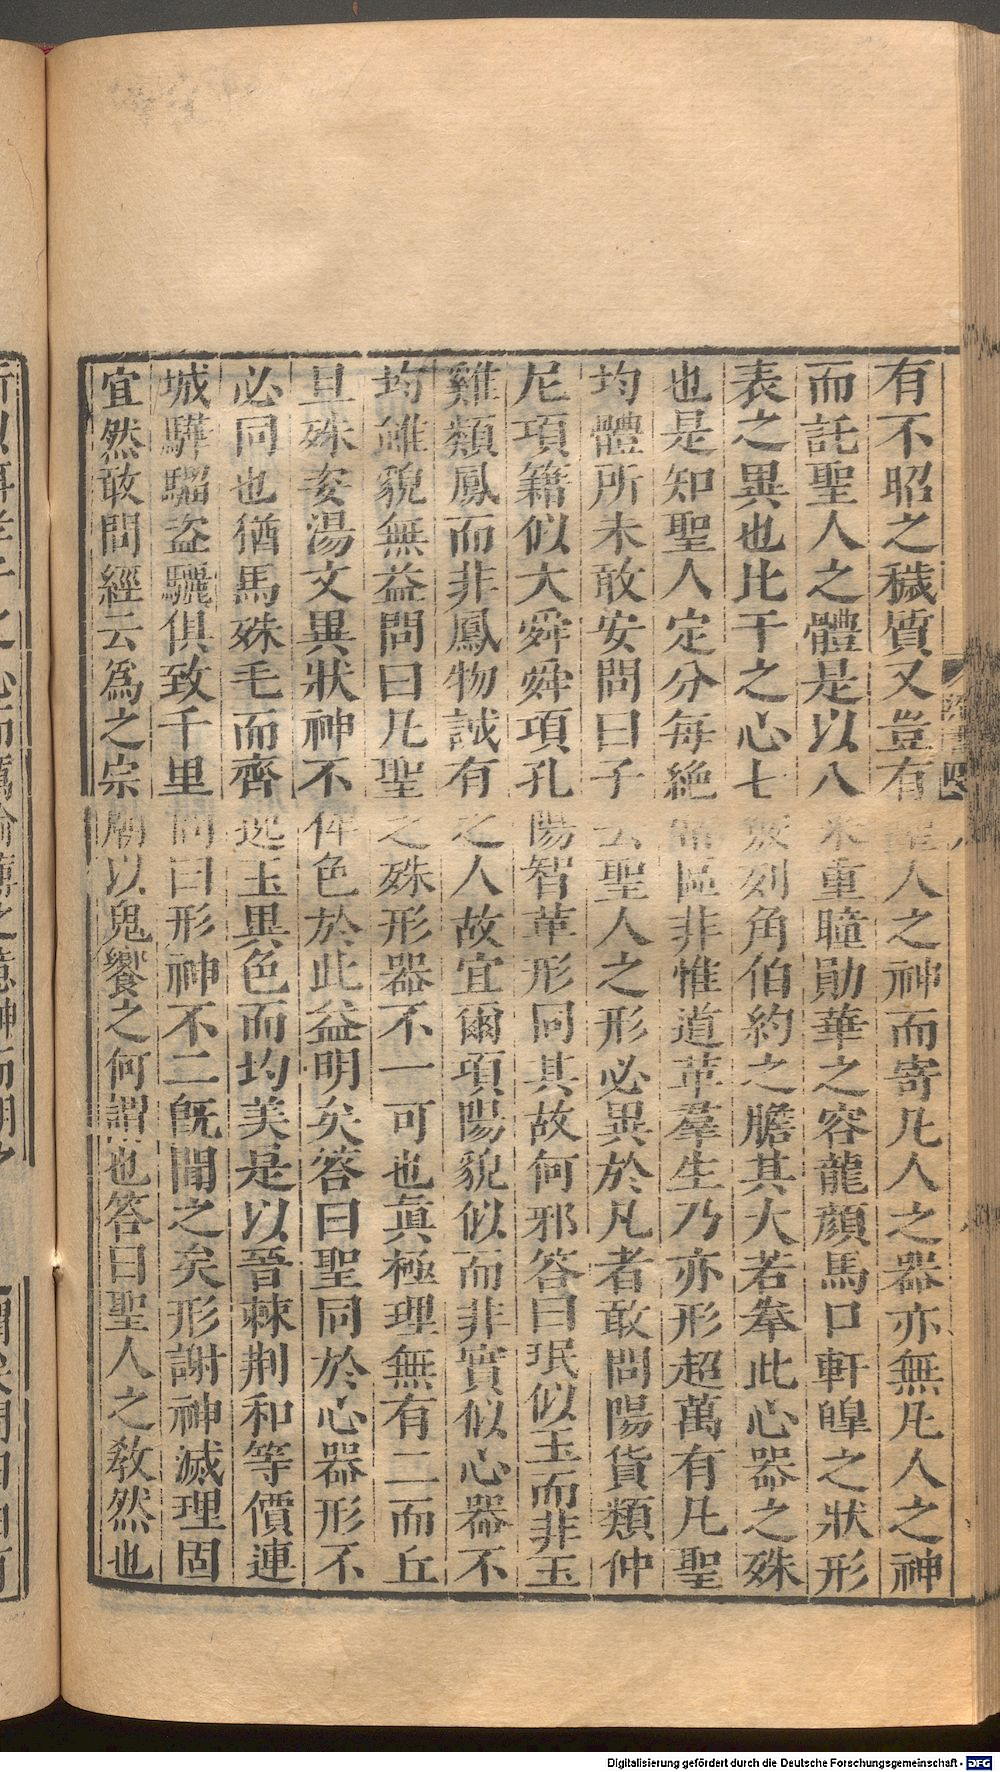 有不昭之穢質又豈有聖人之神而寄凡人之器亦無凡人之神
而託聖人之體是以八采重瞳勛華之容龍顏馬口軒皥之狀形
表之異也比干之心七竅列角伯約之膽其大若拳此心器之殊
也是知聖人定分每絶常區非惟道革羣生乃亦形超萬有凡聖
均體所未敢安問曰子云聖人之形必異於凡者敢問陽貨類仲
尼項籍似大舜舜項孔陽智革形同其故何邪答曰珉似玉而非玉
雞類鳳而非鳳物誠有之人故宜爾項陽貌似而非實似心器不
均雖貌無益問曰凡聖之殊形器不一可也眞極理無有二而丘
旦殊姿湯文異狀神不侔色於此益明矣答曰聖同於心器形不
必同也猶馬殊毛而齊逸玉異色而均美是以晉棘荆和等價連
城驊騮盜驪俱致千里問曰形神不二旣聞之矣形謝神滅理固
宜然敢問經云爲之宗廟以鬼饗之何謂也答曰聖人之敎然也
Digitalisierung gefördert durch die Deutsche Forschungsgemeinschaft - DFG